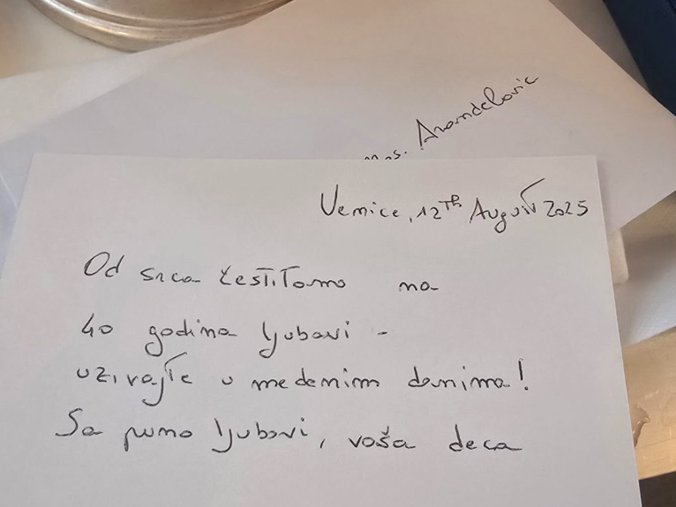 Mrs. Aranđelovic
Venice, 12th August 2025
Od srca čestitamo na
40 godina ljubavi -
uživajte u medenim danima!
Sa puno ljubavi, vaša deca